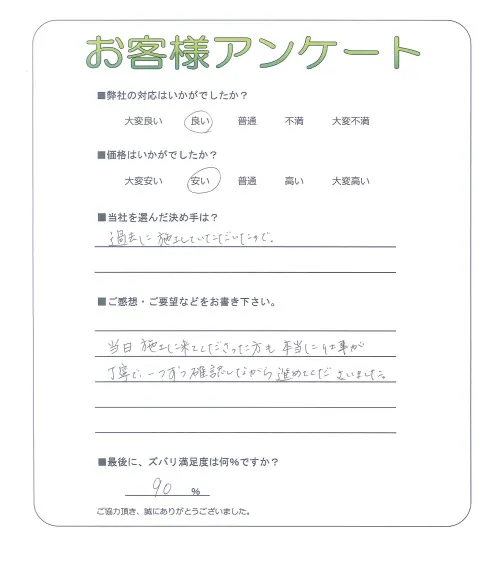 お客様アンケート
■弊社の対応はいかがでしたか？
大変良い 良い 普通 不満 大変不満
■価格はいかがでしたか？
大変安い 安い 普通 高い 大変高い
■当社を選んだ決め手は？
過去に施工していただいたので。
■ご感想・ご要望などをお書き下さい。
当日施工に来てくださった方も本当に仕事が
丁寧で、一つずつ確認しながら進めてくださいました。
■最後に、ズバリ満足度は何%ですか？
90 %
ご協力頂き、誠にありがとうございました。